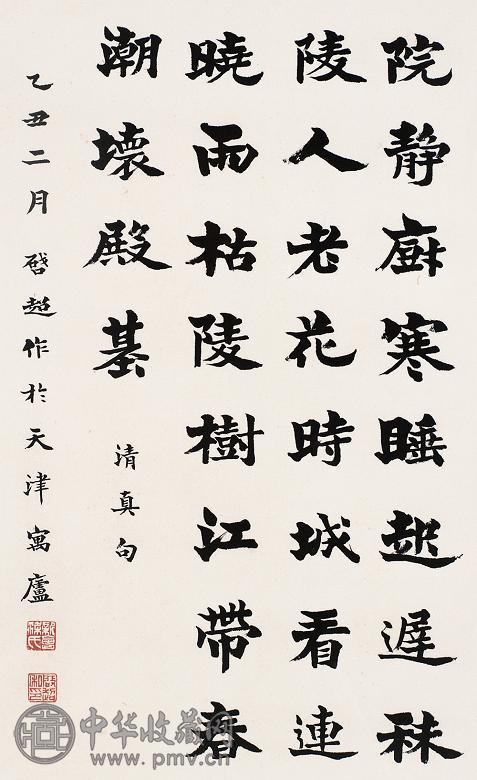 院靜廚寒睡起遲秣
陵人老花時城看連
曉雨枯陵樹江帶春
潮壞殿基
清真句
乙丑二月啓超作於天津寓廬
中华收藏网
www.pmv.cn